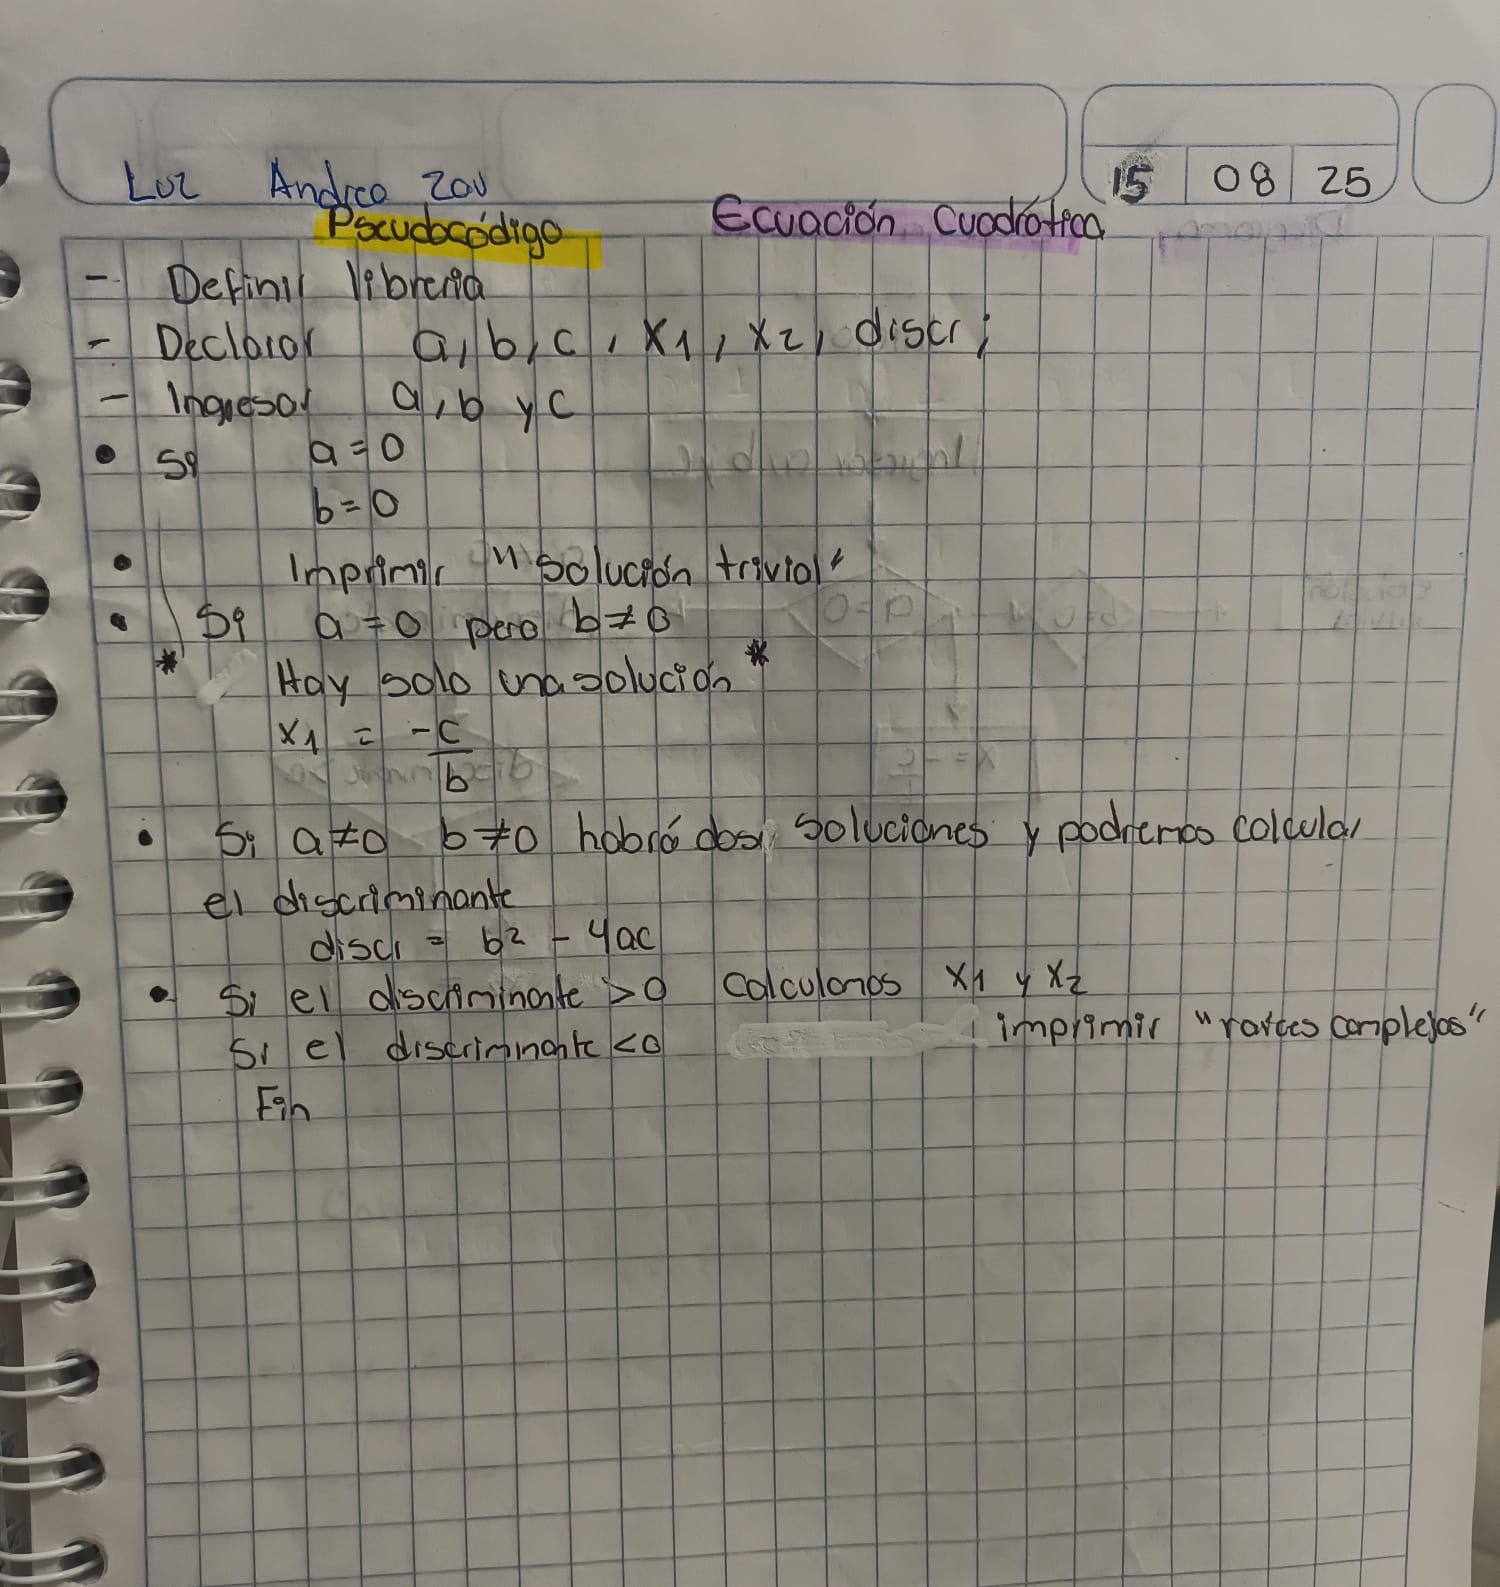 Luz Andrea Zav
15 08 25
Pseudocódigo Ecuación Cuadrática
- Definir librería
- Declarar a, b, c, x1, x2, discr;
- Ingresar a, b y c
• Si a = 0
b = 0
• Imprimir "solución trivial"
• Si a = 0 pero b ≠ 0
* Hay solo una solución *
x1 = -c
b
• Si a≠0 b≠0 habrá dos soluciones y podremos calcular
el discriminante
discr = b² - 4ac
• Si el discriminante >0 calculamos x1 y x2
Si el discriminante <0 imprimir "raíces complejas"
Fin